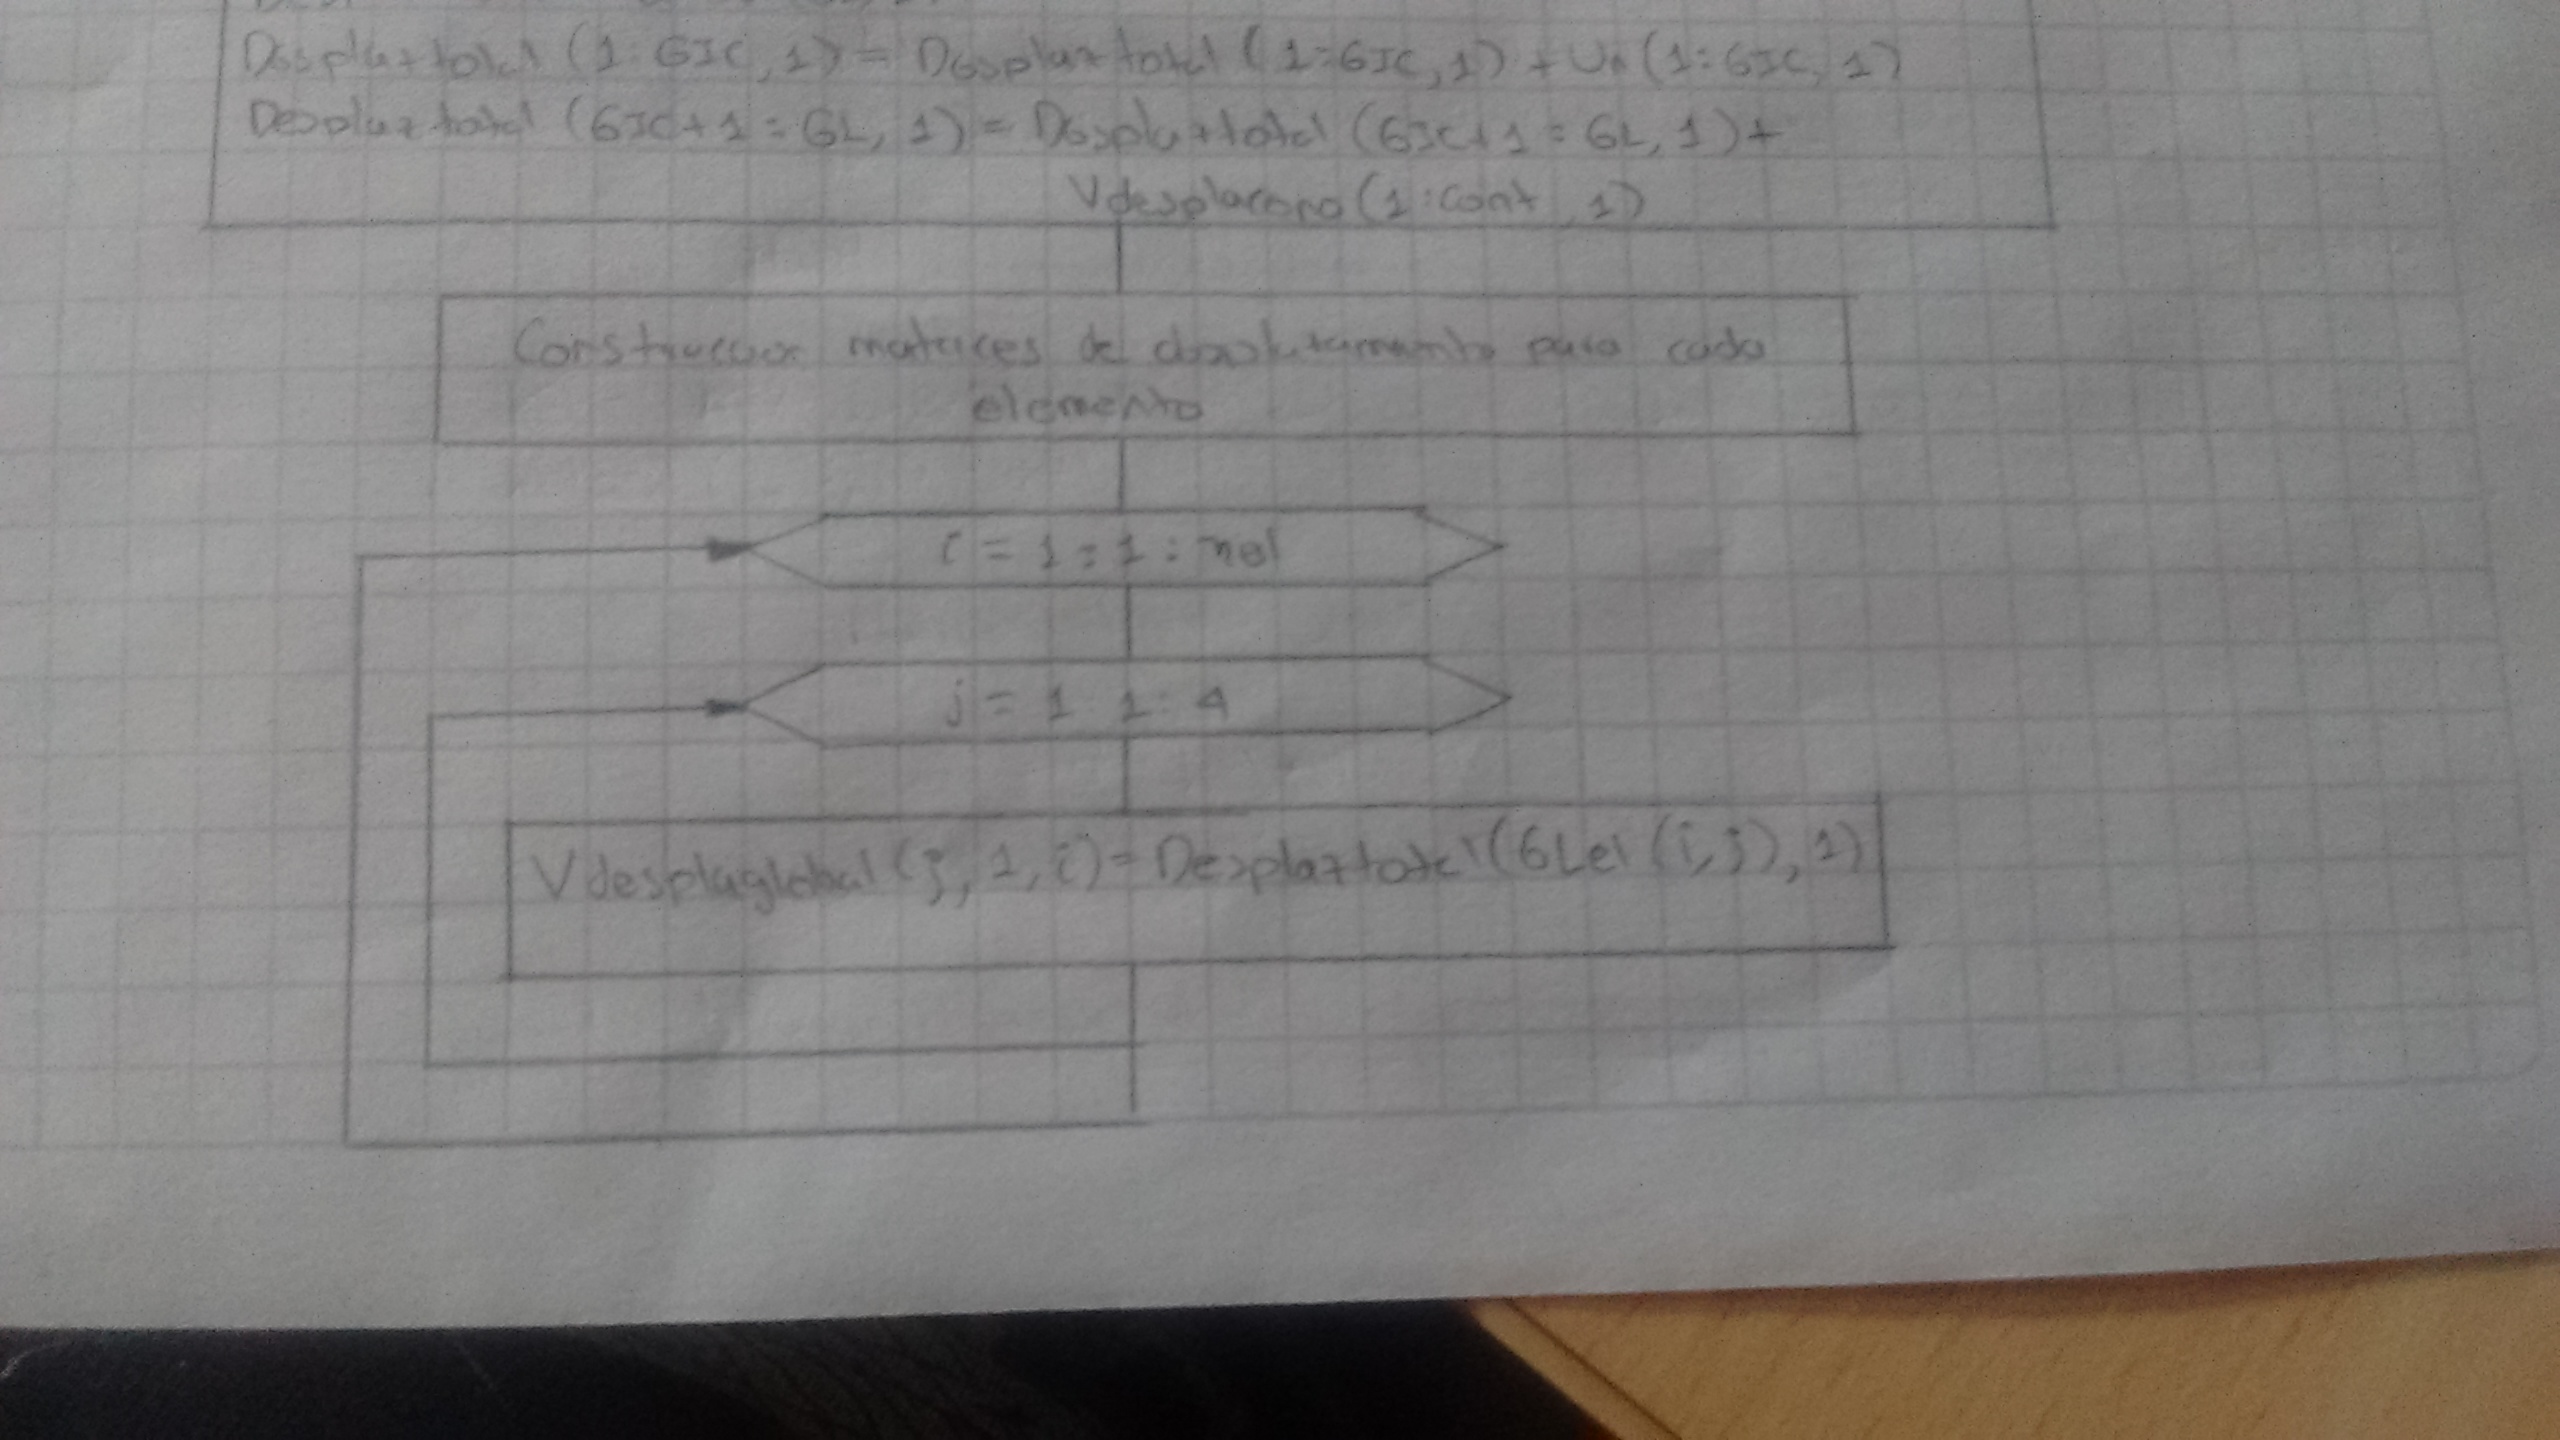 Desplaztotal (1:GIC, 1) = Desplaztotal (1:GIC, 1) + Un (1:GIC, 1)
Desplaztotal (GIC+1:GL, 1) = Desplaztotal (GIC+1:GL, 1) +
(1:cont, 1)
Construccion matrices de desplazamiento para cada
elemento
i = 1:1:nel
j = 1 1:4
Vdesplaglobal (j, 1, i) = Desplaztotal (GLel (i, j), 1)